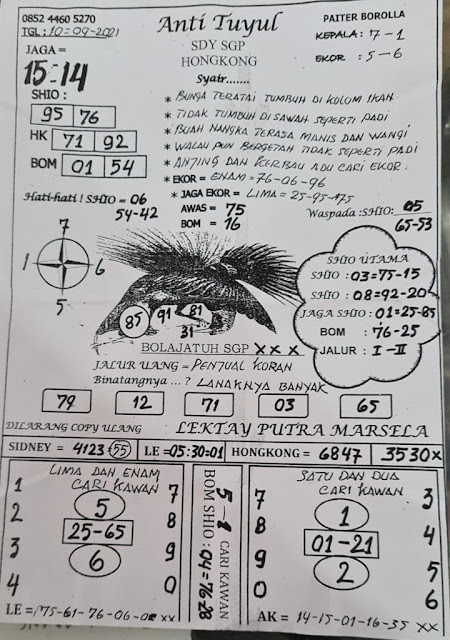 0852 4460 5270
TGL : 10=09-2021
Anti Tuyul
SDY SGP
HONGKONG
PAITER BOROLLA
KEPALA : 7-1
EKOR : 5-6
JAGA =
15=14
SHIO :
95 76
HK 71 92
BOM 01 54
Syair.......
* BUNGA TERATAI TUMBUH DI KOLUM IKAN
* TIDAK TUMBUH DI SAWAH SEPERTI PADI
* BUAH NANGKA TERASA MANIS DAN WANGI
* WALAU PUN BERGETAH TIDAK SEPERTI PADI
* ANJING DAN KERBAU ADU CARI EKOR :
* EKOR = ENAM = 76-06-96
* JAGA EKOR = LIMA = 25-95-175
AWAS = 75
BOM = 76
Hati-hati ! SHIO = 06
54-42
Waspada :SHIO: 05
65-53
7
1 6
5
85 91 81
31
SHIO UTAMA
SHIO : 03=75-15
SHIO : 08=92-20
JAGA SHIO : 01=25-85
BOM : 76-25
JALUR : I - II
BOLAJATUH SGP X X X
JALUR UANG = PENJUAL KORAN
Binatangnya ... ? LANAKNYA BANYAK
79 12 71 03 65
DILARANG COPY ULANG LEKTAY PUTRA MARSELA
SIDNEY = 4123 55 LE =05:30=01 HONGKONG = 6847 3530x
LIMA DAH ENAM
CARI KAWAN
1 2 3 4
5
25-65
6
7 8 9 0
LE = 175-61-76-06-0 xx
BOM SHIO : 04=76-28
5-1 CARI KAWAN
SATU DAN DUA
CARI KAWAN
7 8 9 0
1
01-21
2
3 4 5 6
AK = 14-15-01-16-35 xx